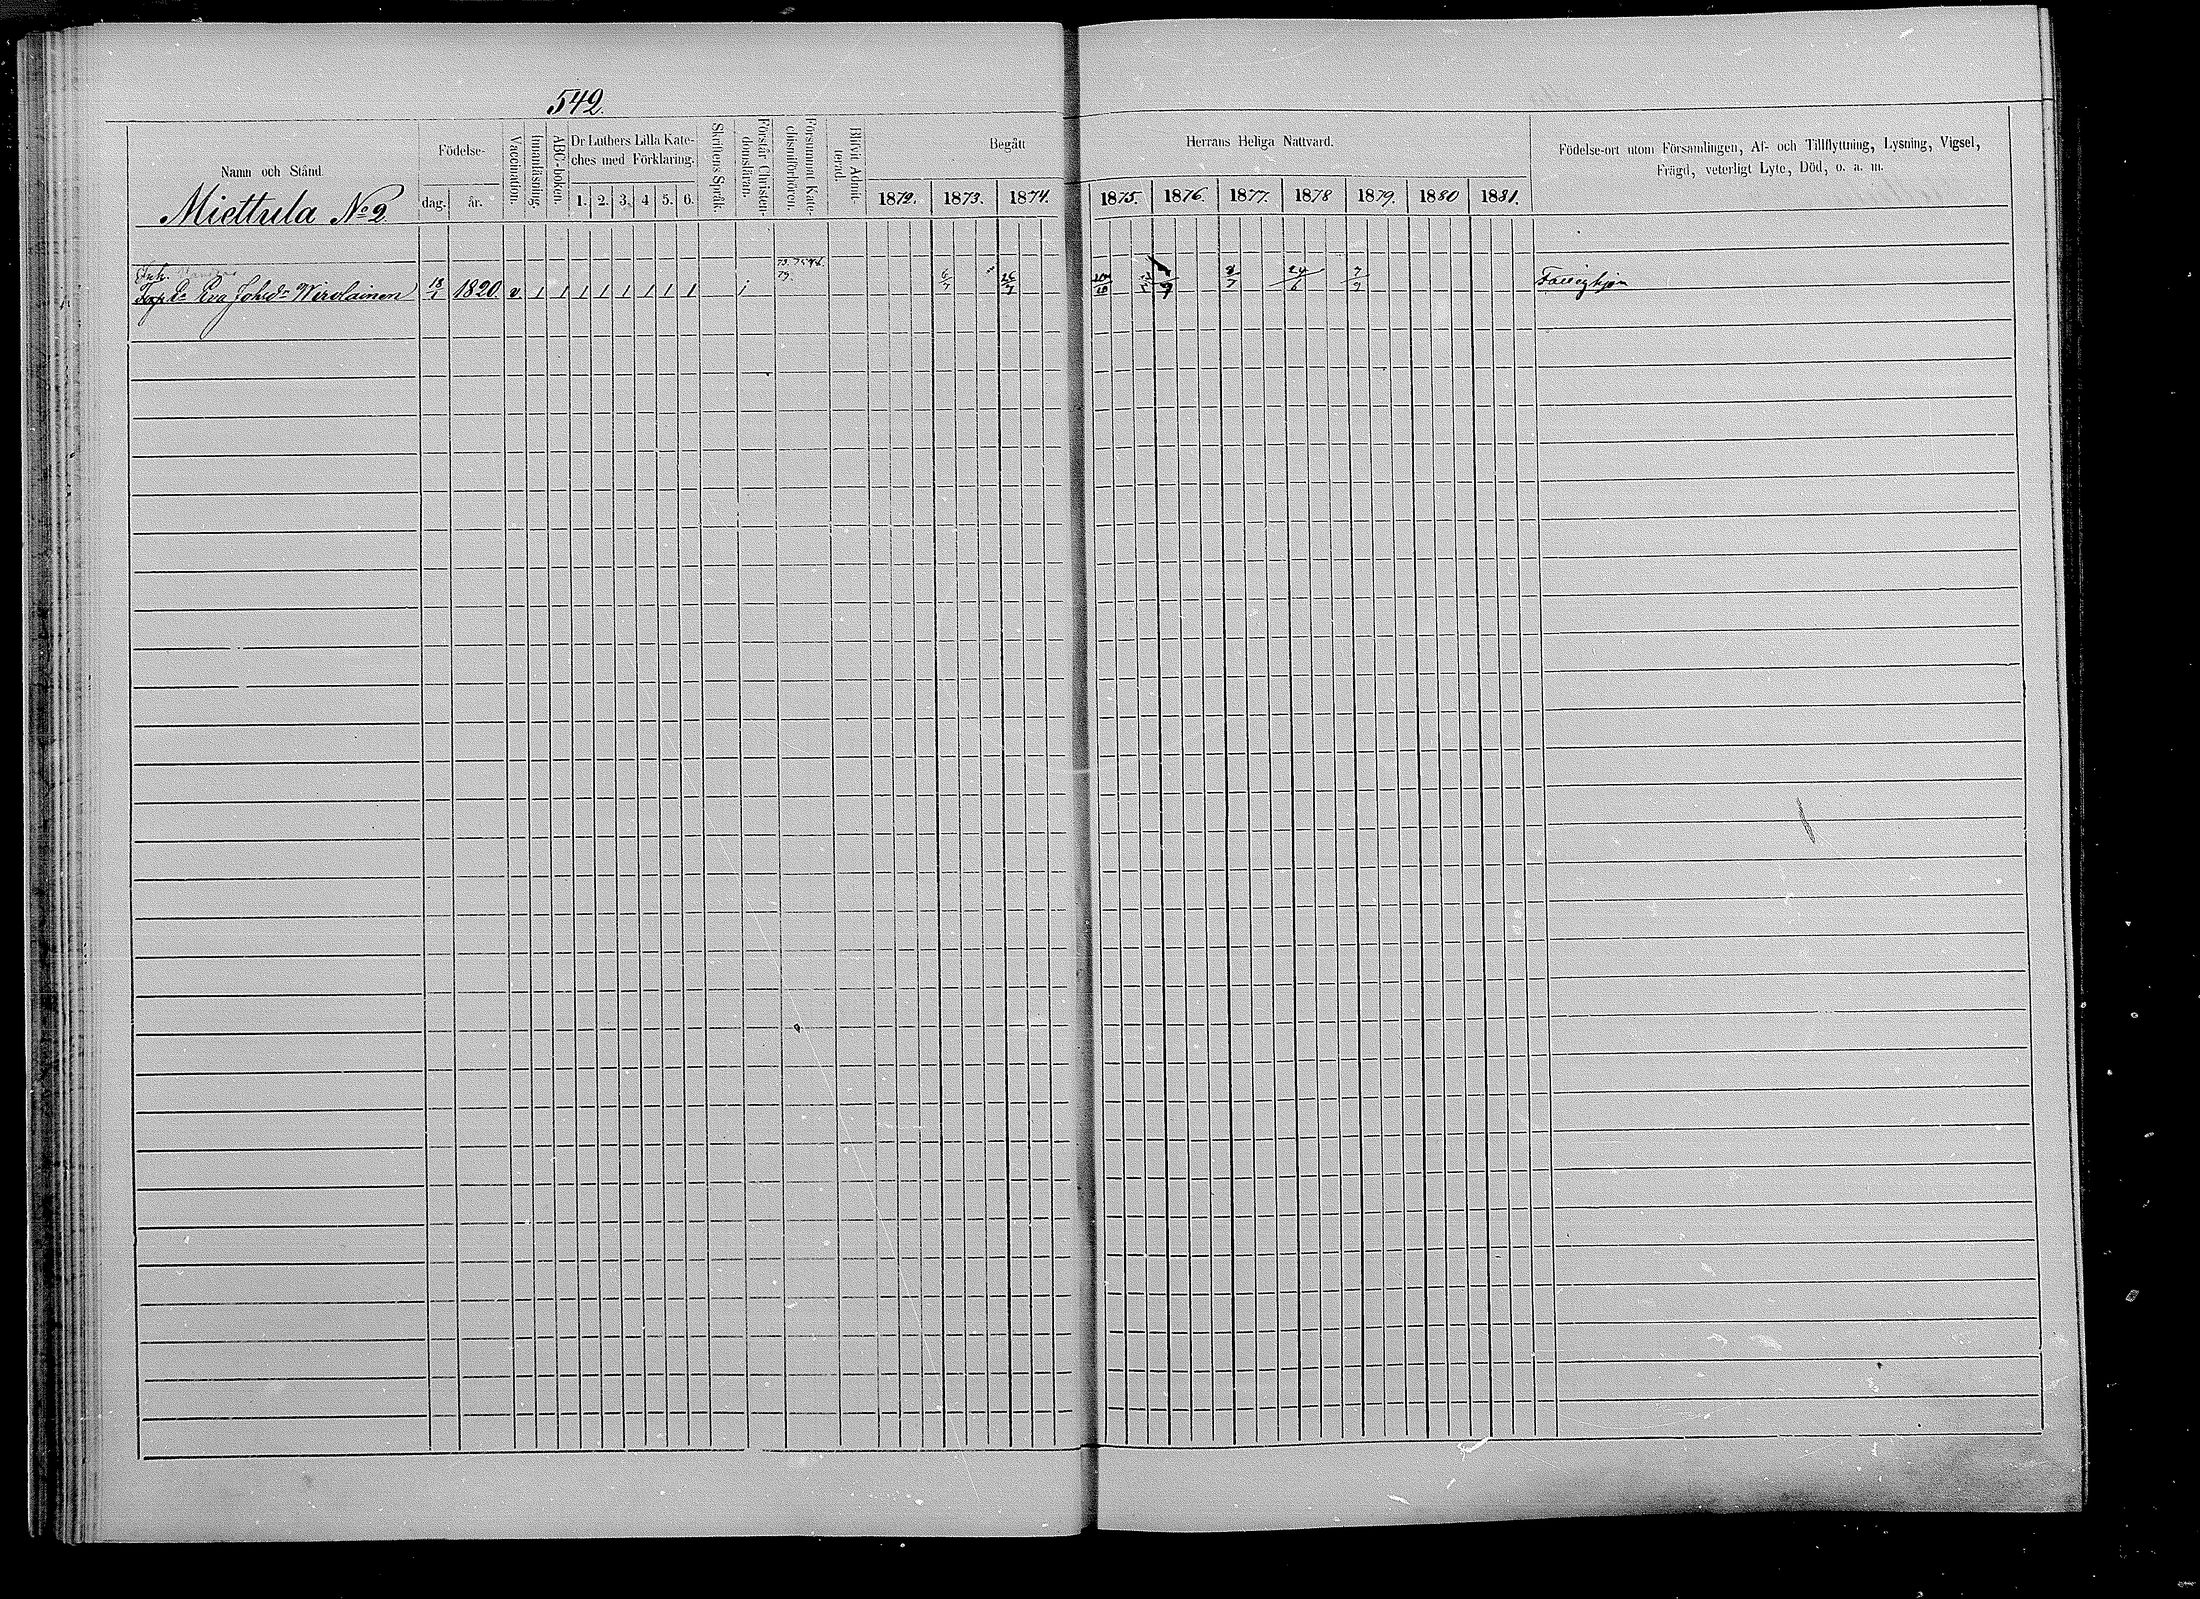 542.
Namn och Stånd.
Miettula No 2
Födelse-
dag.
år.
Vaccination.
Innanläsning.
ABC-boken.
Dr Luthers Lilla Kate-
ches med Förklaring.
1. 2. 3. 4 5. 6.
Skriftens Språk.
Förstår Christen-
domsläran.
Försummat Kate-
chismiförhören.
Blifvit Admit-
terad.
Begått
Herrans Heliga Nattvard.
1872. 1873. 1874. 1875. 1876. 1877. 1878 1879. 1880 1881.
Födelse-ort utom Församlingen, Af- och Tillflyttning, Lysning, Vigsel,
Frägd, veterligt Lyte, Död, o. a. m.
Enk.
Eva Johsdr Wirolainen 18/1 1820. v. 1 1 1 1 1 1 1 1 6/7 26/7 9/7 8/7 24/6 7/9 Fattighjon